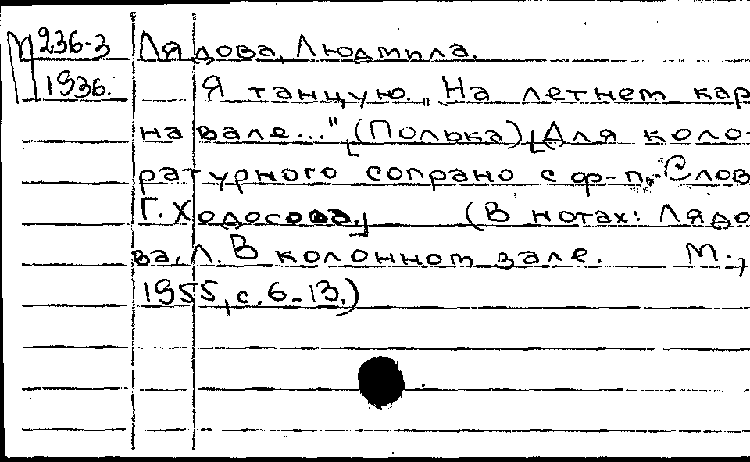 М 236-3 Лядова, Людмила.
1936. Я танцую. „На летнем кар
навале..." (Полька) [Для коло-
ратурного сопрано с ф-п. Слов
Г. Ходосова.] (В нотах: Лядо
ва, Л. В колонном зале. М.,
1955, с. 6-13.)